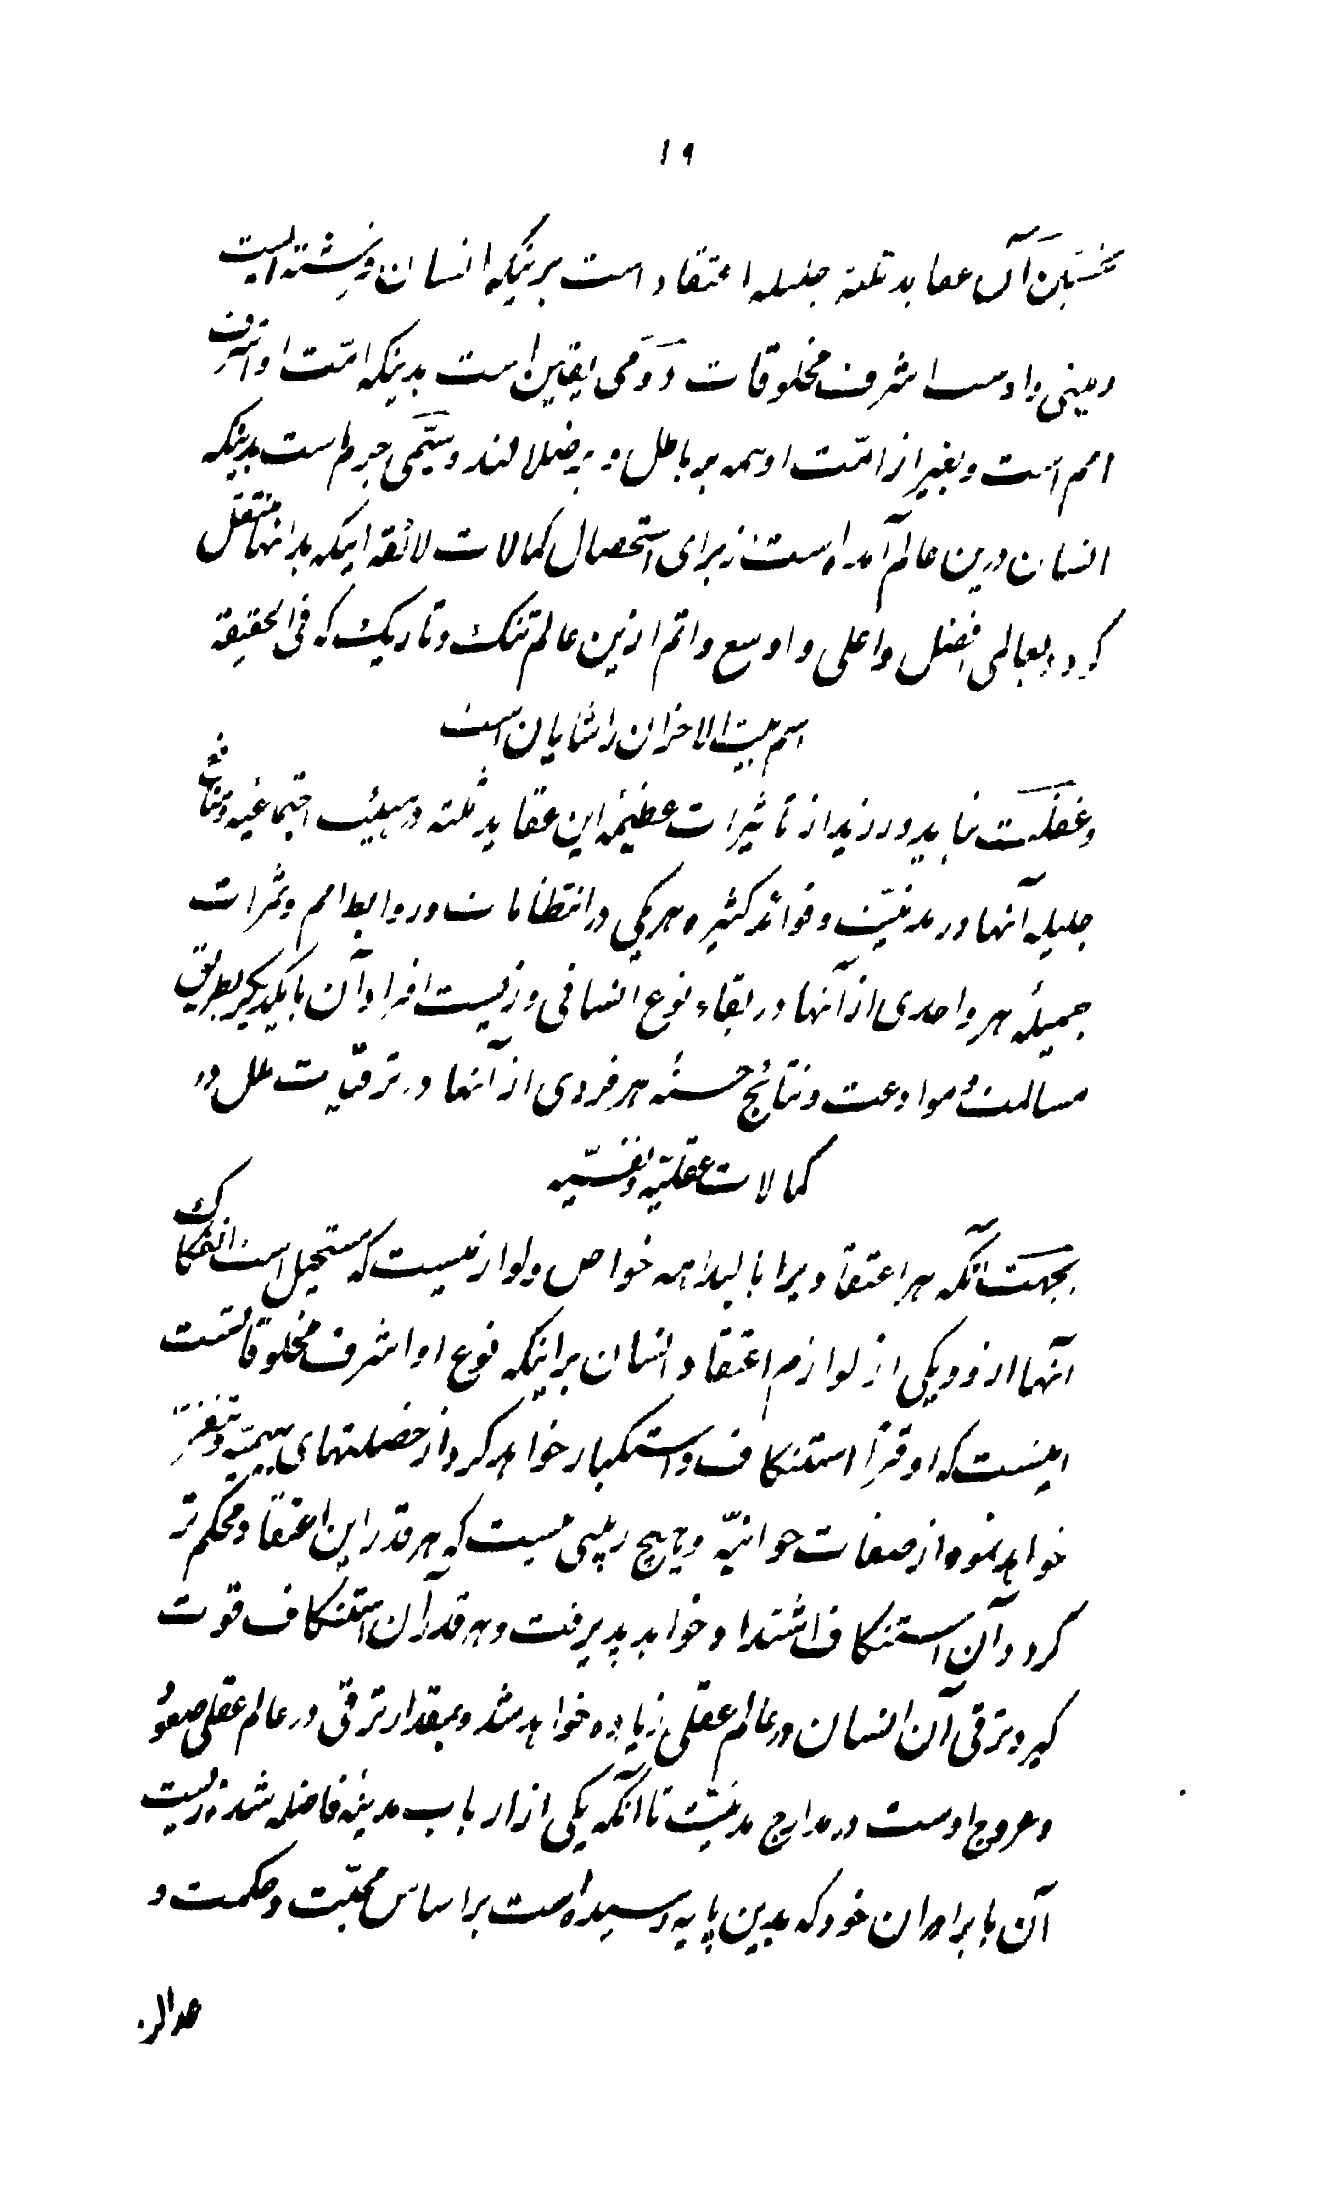 ١٩
نخستین آن عقاید ثلثه جلیله اعتقاد است برینکه انسان فرشته ایست
زمینی و اوست اشرف مخلوقات دومی یقین است بدینکه امّت او اشرف
امم است و بغیر از امّت او همه بر باطل و بر ضلالند و سیّمی جزم است بدینکه
انسان درین عالم آمده است از برای استحصال کمالات لائقه اینکه بدانها منتقل
گردد بعالمی افضل و اعلی و اوسع و اتم ازین عالم تنگ و تاریک که فی الحقیقه
اسم بیت الاحزان را شایان است
و غفلت نباید ورزید از تأثیرات عظیمهٔ این عقاید ثلثه در هیئت اجتماعیه و منافع
جلیله آنها در مدنیّت و فوائد کثیره هر یکی در انتظامات و روابط امم و ثمرات
جمیلهٔ هر واحدی از آنها در بقاء نوع انسانی و زیست افراد آن با یکدیگر بطریق
مسالمت و موادعت و نتائج حسنهٔ هر فردی از آنها در ترقیّات ملل در
کمالات عقلیّه و نفسیّه
بجهت آنکه هر اعتقادیرا بالبداهه خواص و لوازمیست که مستحیل است انفکاک
آنها از و و یکی از لوازم اعتقاد انسان براینکه نوع او اشرف مخلوقاتست
اینست که او قهراً استنکاف و استکبار خواهد کرد از خصلتهای بهیمیّه و تنفّر
خواهد نمود از صفات حیوانیّه و هیچ ریبی نیست که هر قدر این اعتقاد محکم تر
گردد آن استنکاف اشتداد خواهد پذیرفت و هر قدر آن استنکاف قوت
گیرد ترقی آن انسان در عالم عقلی زیاده خواهد شد و بمقدار ترقی در عالم عقلی صعود
و عروج اوست در مدارج مدنیّت تا آنکه یکی از ارباب مدینهٔ فاضله شده زیست
آن با برادران خود که بدین پایه رسیده است بر اساس محبّت و حکمت و
عدالت